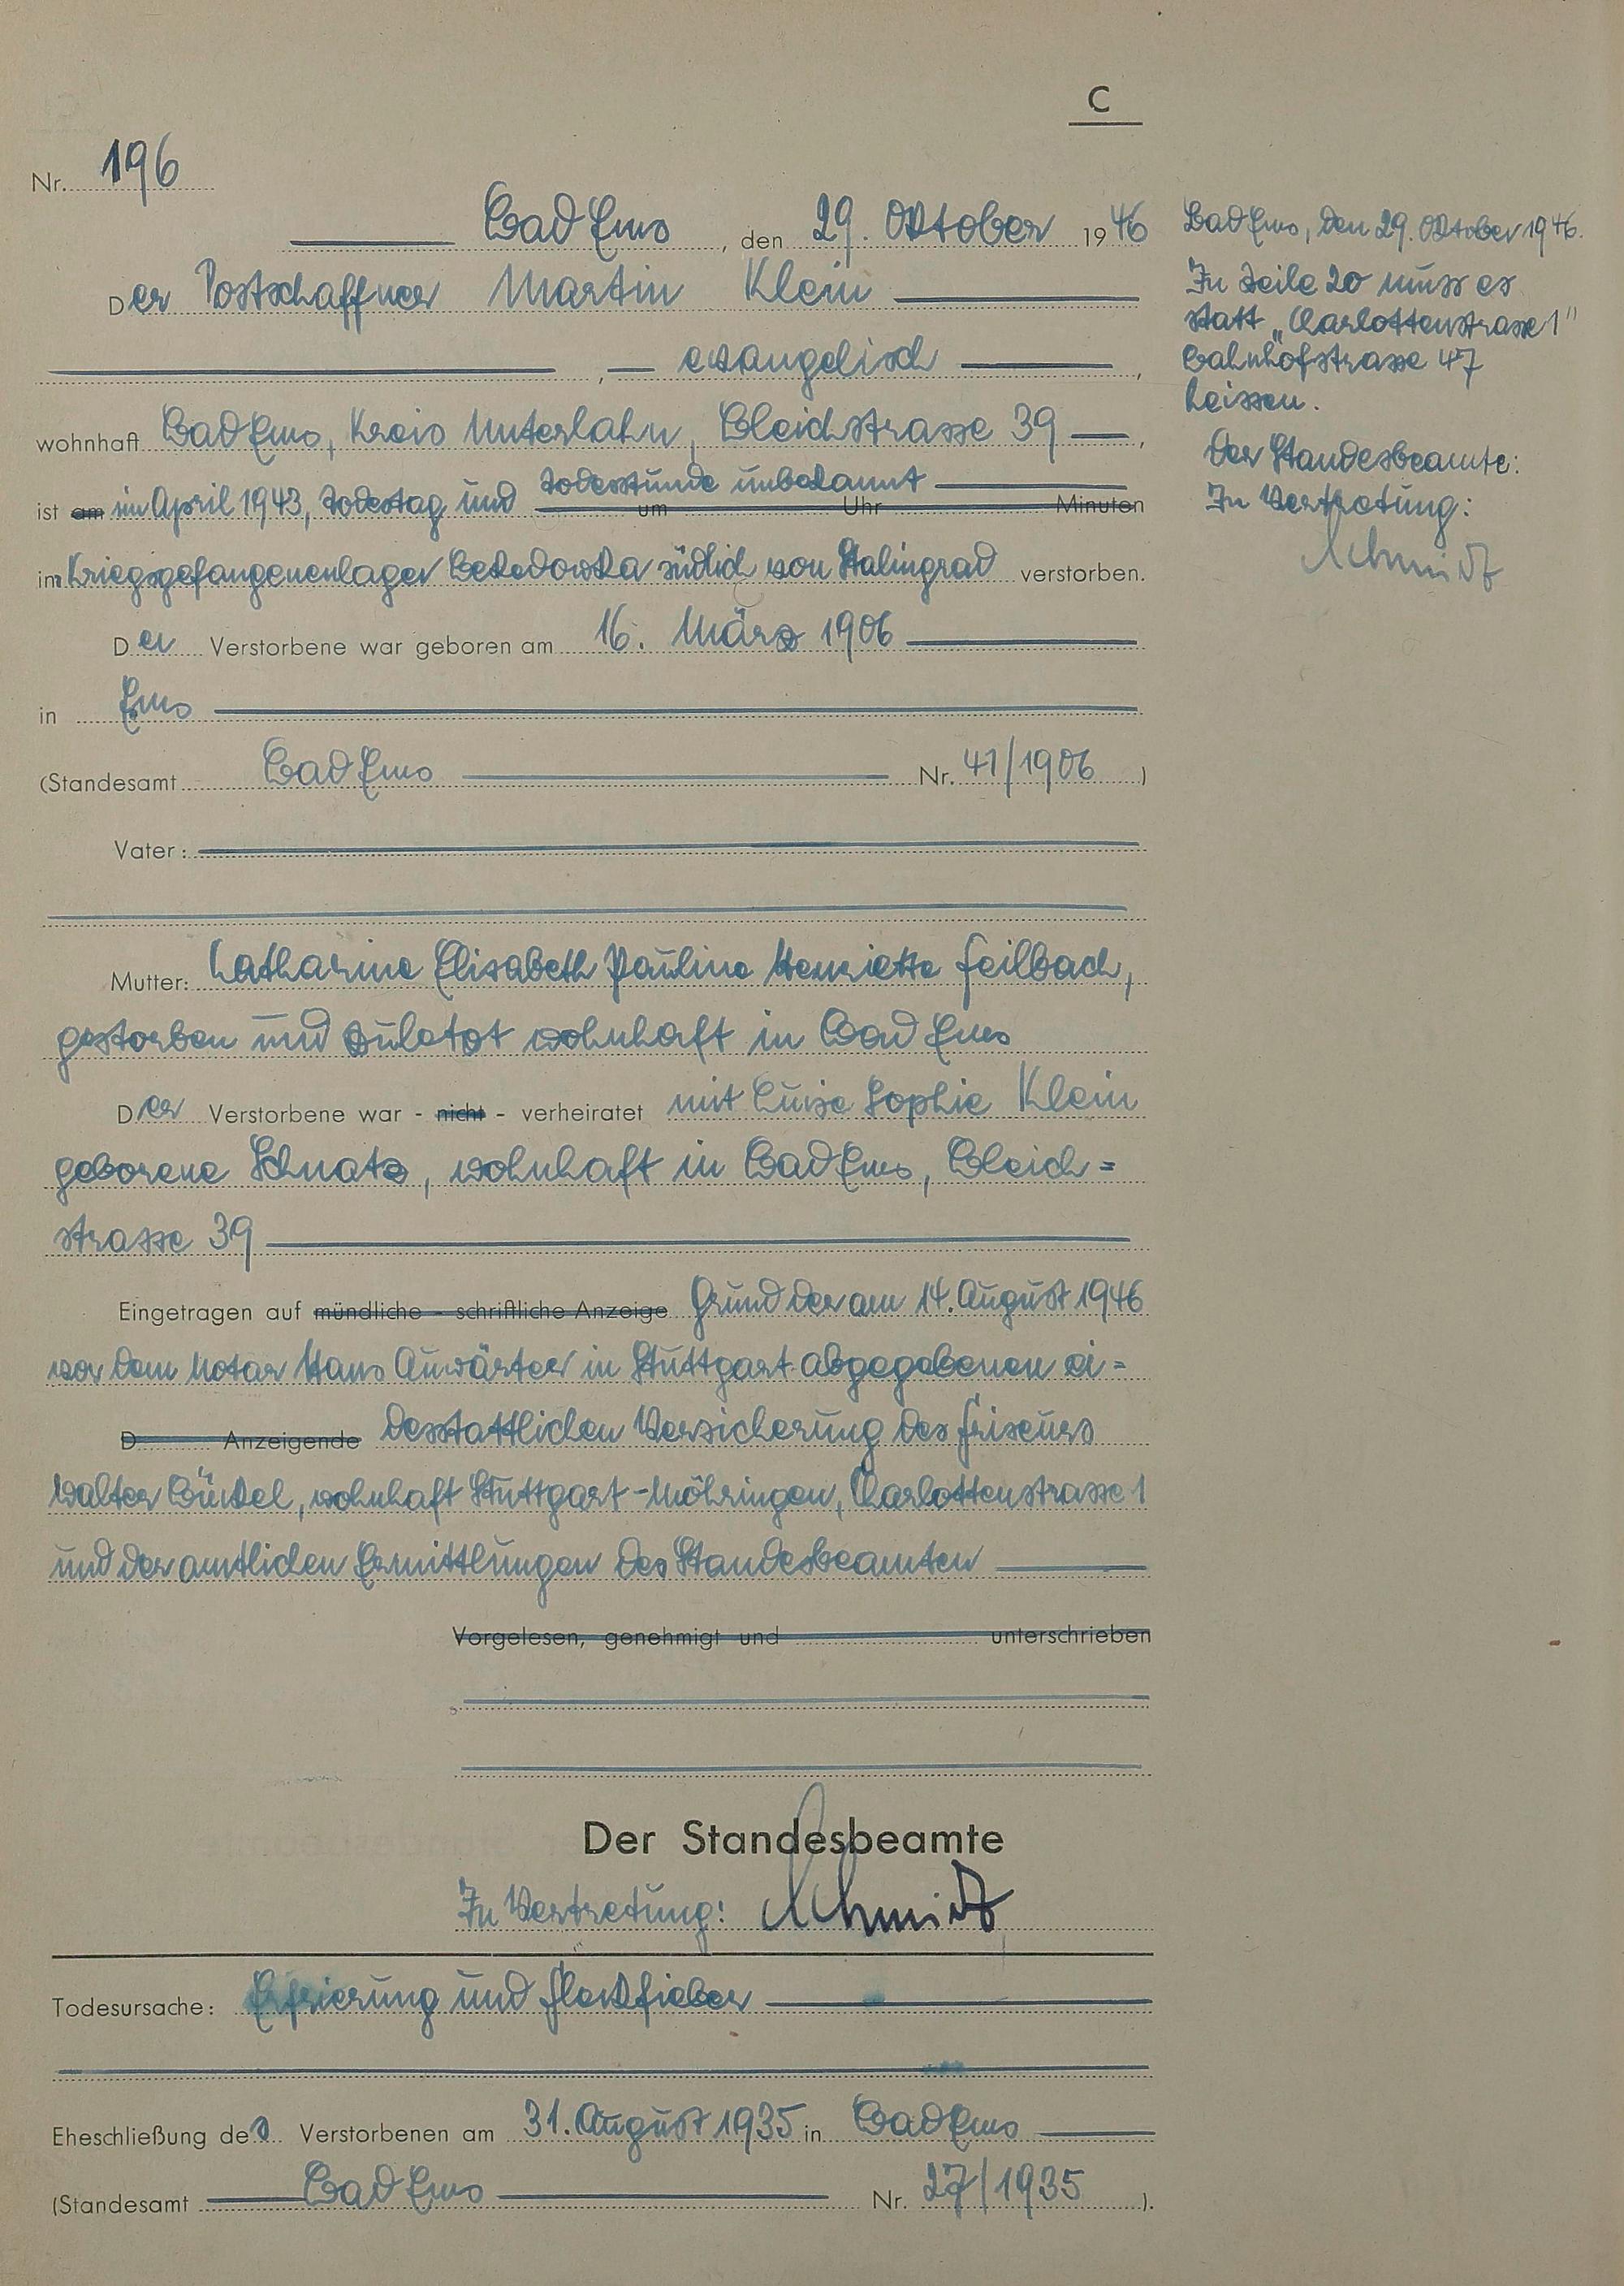 C
Nr. 196
Bad Ems, den 29. Oktober 1946
Der Postschaffner Martin Klein
, evangelisch ,
wohnhaft Bad Ems, Kreis Unterlahn, Bleichstrasse 39 ,
ist am im April 1943, Todestag und Todesstunde unbekannt um Uhr Minuten
im Kriegsgefangenenlager Bekedowka südlich von Stalingrad verstorben.
Der Verstorbene war geboren am 16. März 1906
in Ems
(Standesamt Bad Ems Nr. 41/1906 )
Vater:
Mutter: Katharine Elisabeth Pauline Henriette Feilbach,
gestorben und zuletzt wohnhaft in Bad Ems
Der Verstorbene war - nicht - verheiratet mit Luise Sophie Klein
geborene Schnatz, wohnhaft in Bad Ems, Bleich=
strasse 39
Eingetragen auf mündliche - schriftliche Anzeige Grund der am 14. August 1946
vor dem Notar Hans Anwärter in Stuttgart abgegebenen ei=
D Anzeigende desstattlichen Versicherung des Friseurs
Walter Bürkel, wohnhaft Stuttgart-Möhringen, Karlottenstrasse 1
und der amtlichen Ermittlungen des Standesbeamten
Vorgelesen, genehmigt und unterschrieben
Der Standesbeamte
In Vertretung: Schmidt
Todesursache: Erfrierung und Fleckfieber
Eheschließung des Verstorbenen am 31. August 1935 in Bad Ems
(Standesamt Bad Ems Nr. 27/1935 ).
Bad Ems, den 29. Oktober 1946.
In Zeile 20 muss es
statt „Karlottenstrasse 1"
Bahnhofstrasse 47
heissen.
Der Standesbeamte:
In Vertretung:
Schmidt